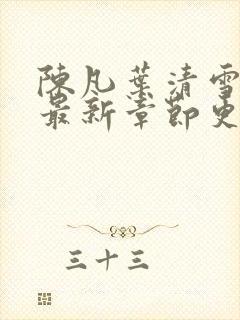 陳凡葉清雪
最新章節更
三十三